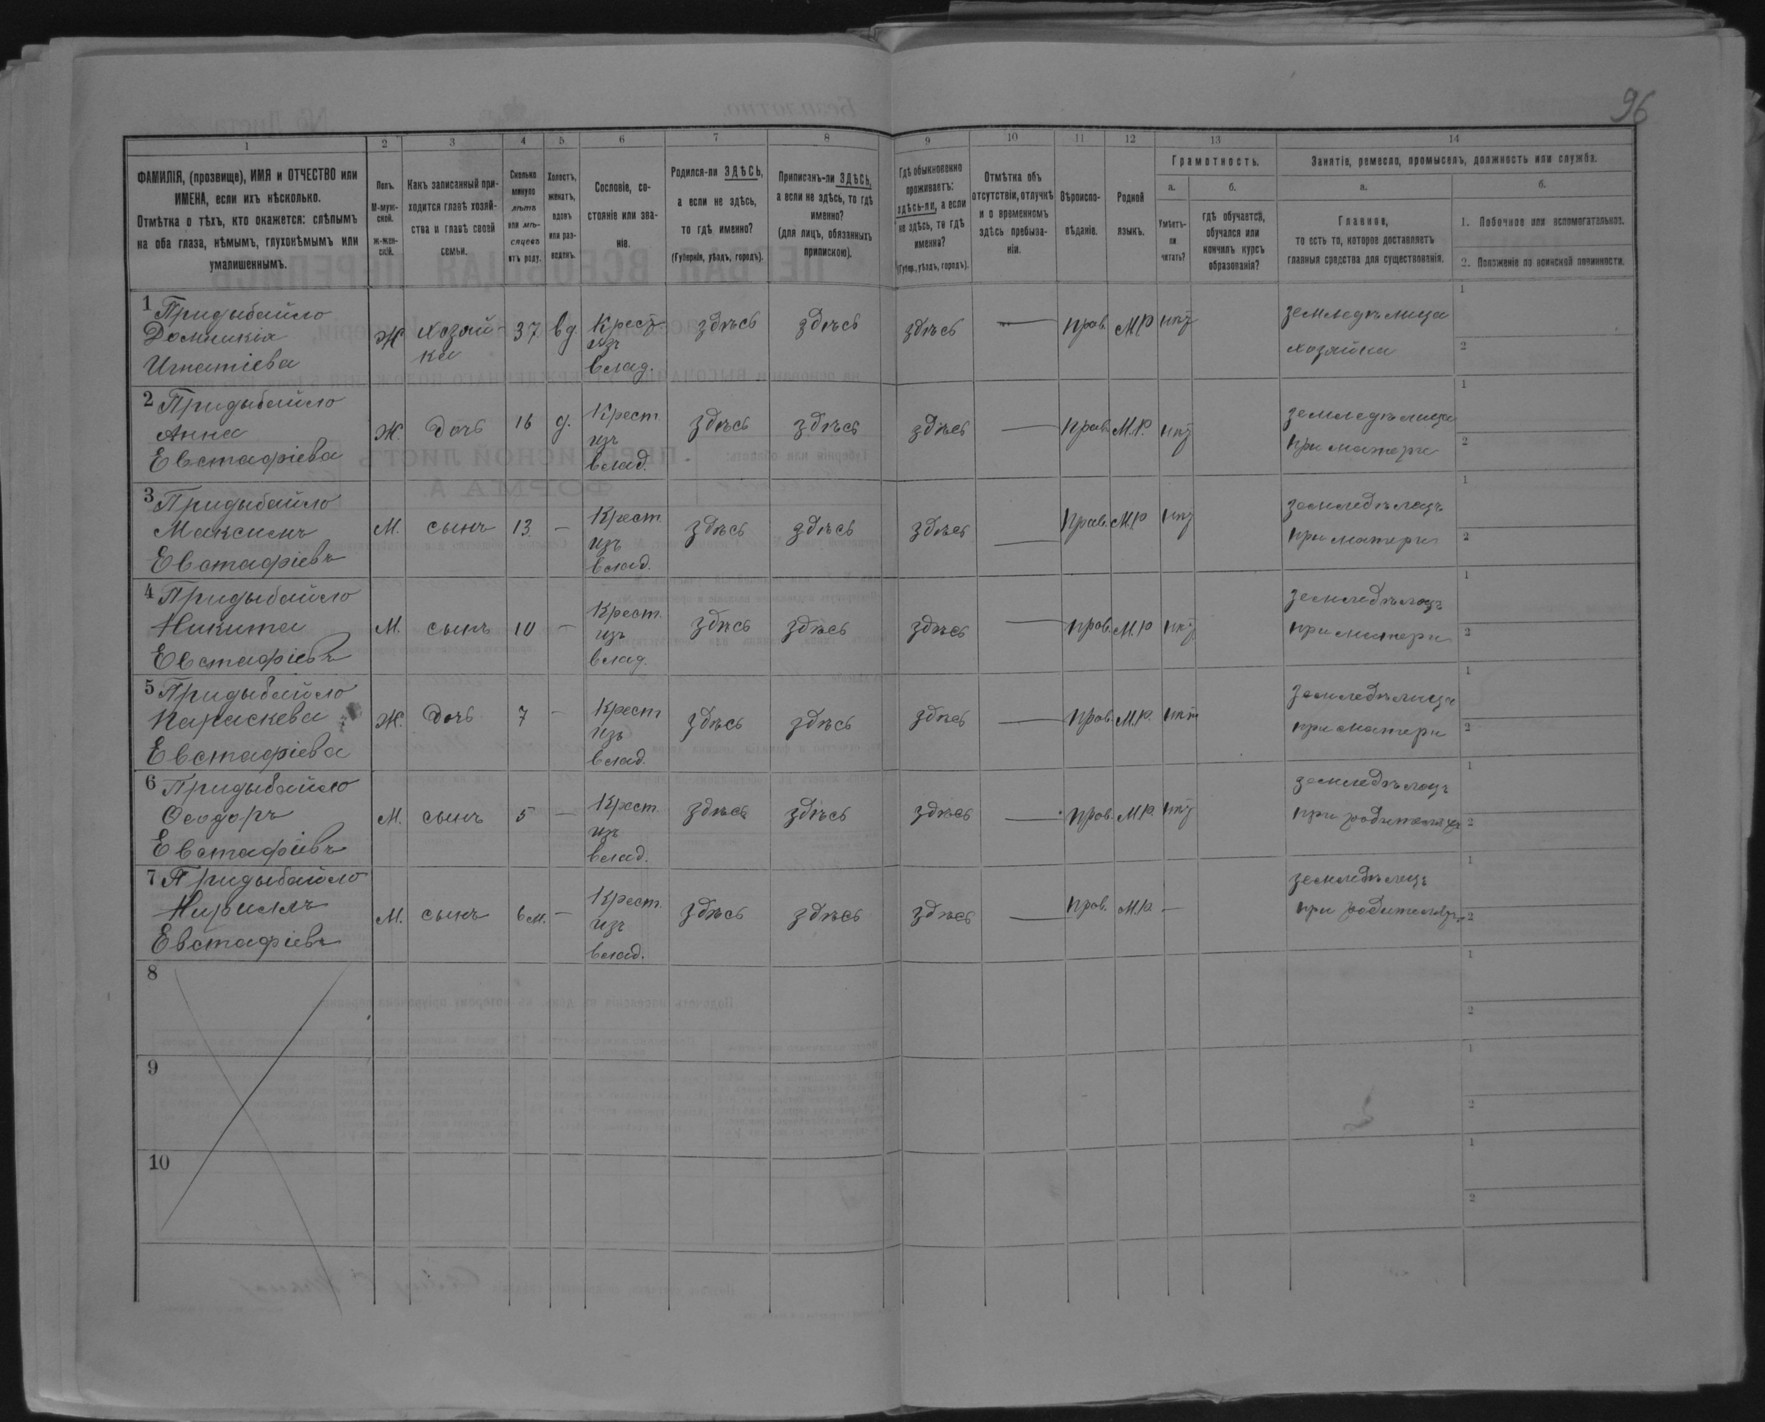 96
1 2 3 4 5. 6 7 8 9 10 11 12 13 14
ФАМИЛІЯ, (прозвище), ИМЯ и ОТЧЕСТВО или
ИМЕНА, если ихъ нѣсколько.
Отмѣтка о тѣхъ, кто окажется: слѣпымъ
на оба глаза, нѣмымъ, глухонѣмымъ или
умалишеннымъ.
Полъ.
М-муж-
ской.
Ж-жен-
скій.
Какъ записанный при-
ходится главѣ хозяй-
ства и главѣ своей
семьи.
Сколько
минуло
лѣтъ
или мѣ-
сяцевъ
отъ роду.
Холостъ,
женатъ,
вдовъ
или раз-
веденъ.
Сословіе, со-
стояніе или зва-
ніе.
Родился-ли ЗДѢСЬ,
а если не здѣсь,
то гдѣ именно?
(Губернія, уѣздъ, городъ).
Приписанъ-ли ЗДѢСЬ,
а если не здѣсь, то гдѣ
именно?
(для лицъ, обязанныхъ
припискою).
Гдѣ обыкновенно
проживаетъ:
здѣсь-ли, а если
не здѣсь, то гдѣ
именно?
(Губер., уѣздъ, городъ).
Отмѣтка объ
отсутствіи, отлучкѣ
и о временномъ
здѣсь пребыва-
ніи.
Вѣроиспо-
вѣданіе.
Родной
языкъ.
Грамотность.
а.
Умѣетъ-
ли
читать?
б.
гдѣ обучается,
обучался или
кончилъ курсъ
образованія?
Занятіе, ремесло, промыселъ, должность или служба.
а.
Главное,
то есть то, которое доставляетъ
главныя средства для существованія.
б.
1. Побочное или вспомогательное.
2. Положеніе по воинской повинности.
1 Придыбайло
Домникія
Игнатіева
Ж хозяй-
ка
37 вд
Крест
изъ
влад.
здѣсь здѣсь здѣсь — прав. МР нѣт
земледѣлица
хозяйка
1
2
2 Придыбайло
Анна
Евстафіева
Ж. Дочь 16 д.
Крест
изъ
влад.
здѣсь здѣсь здѣсь — Прав. М.Р. нѣт
земледѣлица
при матери
1
2
3 Придыбайло
Максимъ
Евстафіевъ
М. сынъ 13 —
Крест
изъ
влад.
здѣсь здѣсь здѣсь — Прав. М.Р нѣт
земледѣлецъ
при матери
1
2
4 Придыбайло
Никита
Евстафіевъ
М. сынъ 10 —
Крест.
изъ
влад.
здѣсь здѣсь здѣсь — прав. М.Р нѣт
земледѣлецъ
при матери
1
2
5 Придыбайло
Параскева
Евстафіева
Ж. Дочь 7 —
Крест
изъ
влад.
здѣсь здѣсь здѣсь — прав. М.Р. нѣт
земледѣлица
при матери
1
2
6 Придыбайло
Ѳеодоръ
Евстафіевъ
М. сынъ 5 —
Крест.
изъ
влад.
здѣсь здѣсь здѣсь — прав. М.Р. нѣт
земледѣлецъ
при родителяхъ
1
2
7 Придыбайло
Кириллъ
Евстафіевъ
М. сынъ 6 м. —
Крест.
изъ
влад.
здѣсь здѣсь здѣсь — прав. М.Р —
земледѣлецъ
при родителяхъ
1
2
8
1
2
9
1
2
10
1
2